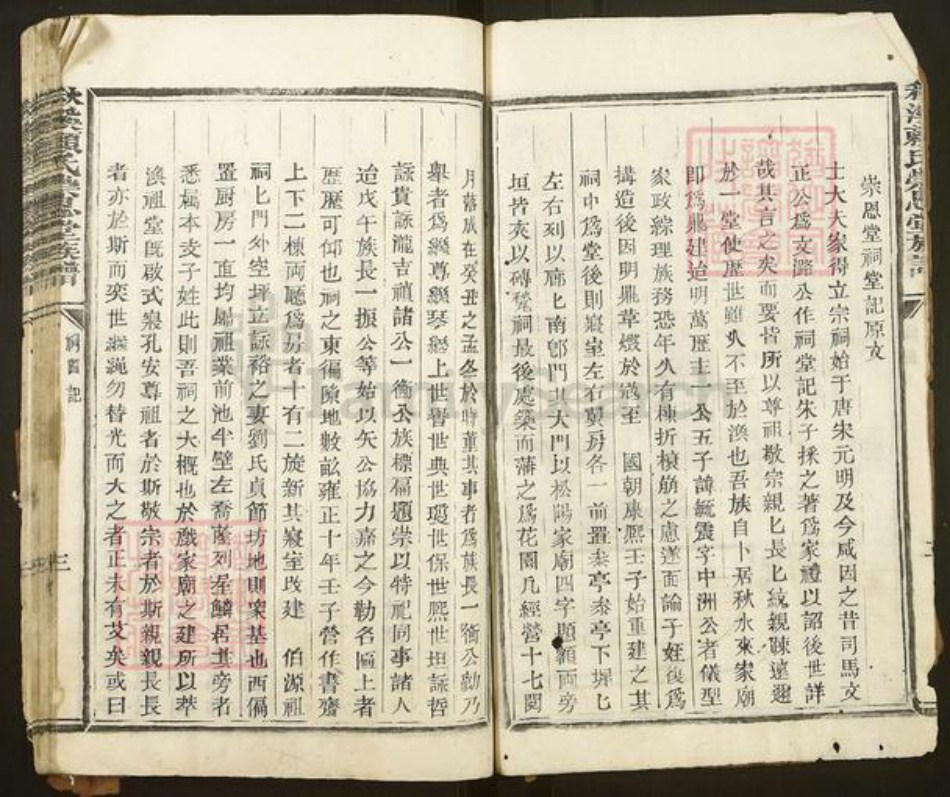 崇恩堂祠堂記原文
士大夫家得立宗祠始于唐宋元明及今咸因之昔司馬文
正公爲文潞公作祠堂記朱子採之著爲家禮以詔後世詳
哉其言之矣而要皆所以尊祖敬宗親匕長匕紋親踈遠邇
於一堂使歴世雖乆不至於渙也吾族自卜居秋水來家廟
即爲鼎建迨明萬歴主一公五子諱毓震字中洲公者儀型
家政綜理族務恐年乆有棟折榱崩之慮遂面諭子姪復爲
構造後因明鼎革燬於寇至 國朝康熙壬子始重建之其
祠中爲堂後則寢室左右翼房各一前置泰亭泰亭下墀匕
左右列以廊匕南卽門其大門以松陽家廟四字題額両旁
垣皆夾以磚甃祠最後處築而藩之爲花園凡經營十七閱
月落成在癸丑之孟冬於時董其事者爲族長一衡公勷乃
舉者爲繼尊繼琴繼上世譽世典世瓊世保世熙世坦詠哲
詠貴詠龍吉禎諸公一衡公族標匾題崇以特祀同事諸人
迨戊午族長一振公等始以矢公協力嘉之今勒名匾上者
歴歴可仰也祠之東徧隙地數畝雍正十年壬子營作書齋
上下二棟両廳爲房者十有二旋新其寢室改建 伯源祖
祠匕門外空坪立詠裕之妻劉氏貞節坊地則衆基也西偏
置厨房一直均屬祖業前池半壁左喬蔭列星麟居其旁者
悉屬本支子姓此則吾祠之大概也於戲家廟之建所以萃
渙祖堂旣啟式寢孔安尊祖者於斯敬宗者於斯親親長長
者亦於斯而奕世繼繩勿替光而大之者正未有艾矣或曰
秋溪賴氏崇恩堂族譜
祠堂記
三